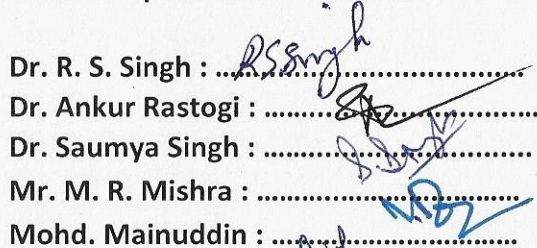 Dr. R. S. Singh : RSSingh
Dr. Ankur Rastogi :
Dr. Saumya Singh :
Mr. M. R. Mishra :
Mohd. Mainuddin :